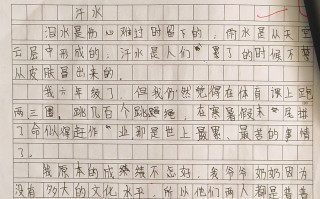 汗水
泪水是伤心难过时留下的，雨水是从天空
云层中形成的，汗水是人们累了的时候不禁
从皮肤冒出来的。
我六年级了，但我仍然觉得在体育课上跑
两三圈，跳几百个跳绳，在寒暑假末尾拼
了命似得赶作业那是世上最累、最苦的事情
了。
我原本的成绩不怎好，我爷爷奶奶因为
没有多大的文化水平，所以他们两人都是普普